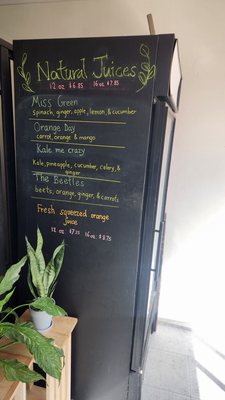 Natural Juices
12 oz $6.85 16 oz $7.85
Miss Green
spinach, ginger, apple, lemon, & cucumber
Orange Day
carrot, orange & mango
Kale me crazy
Kale, pineapple, cucumber, celery, &
ginger
The Beetles
beets, orange, ginger, & carrots
Fresh squeezed orange
juice
12 oz. $7.75 16 oz. $8.75